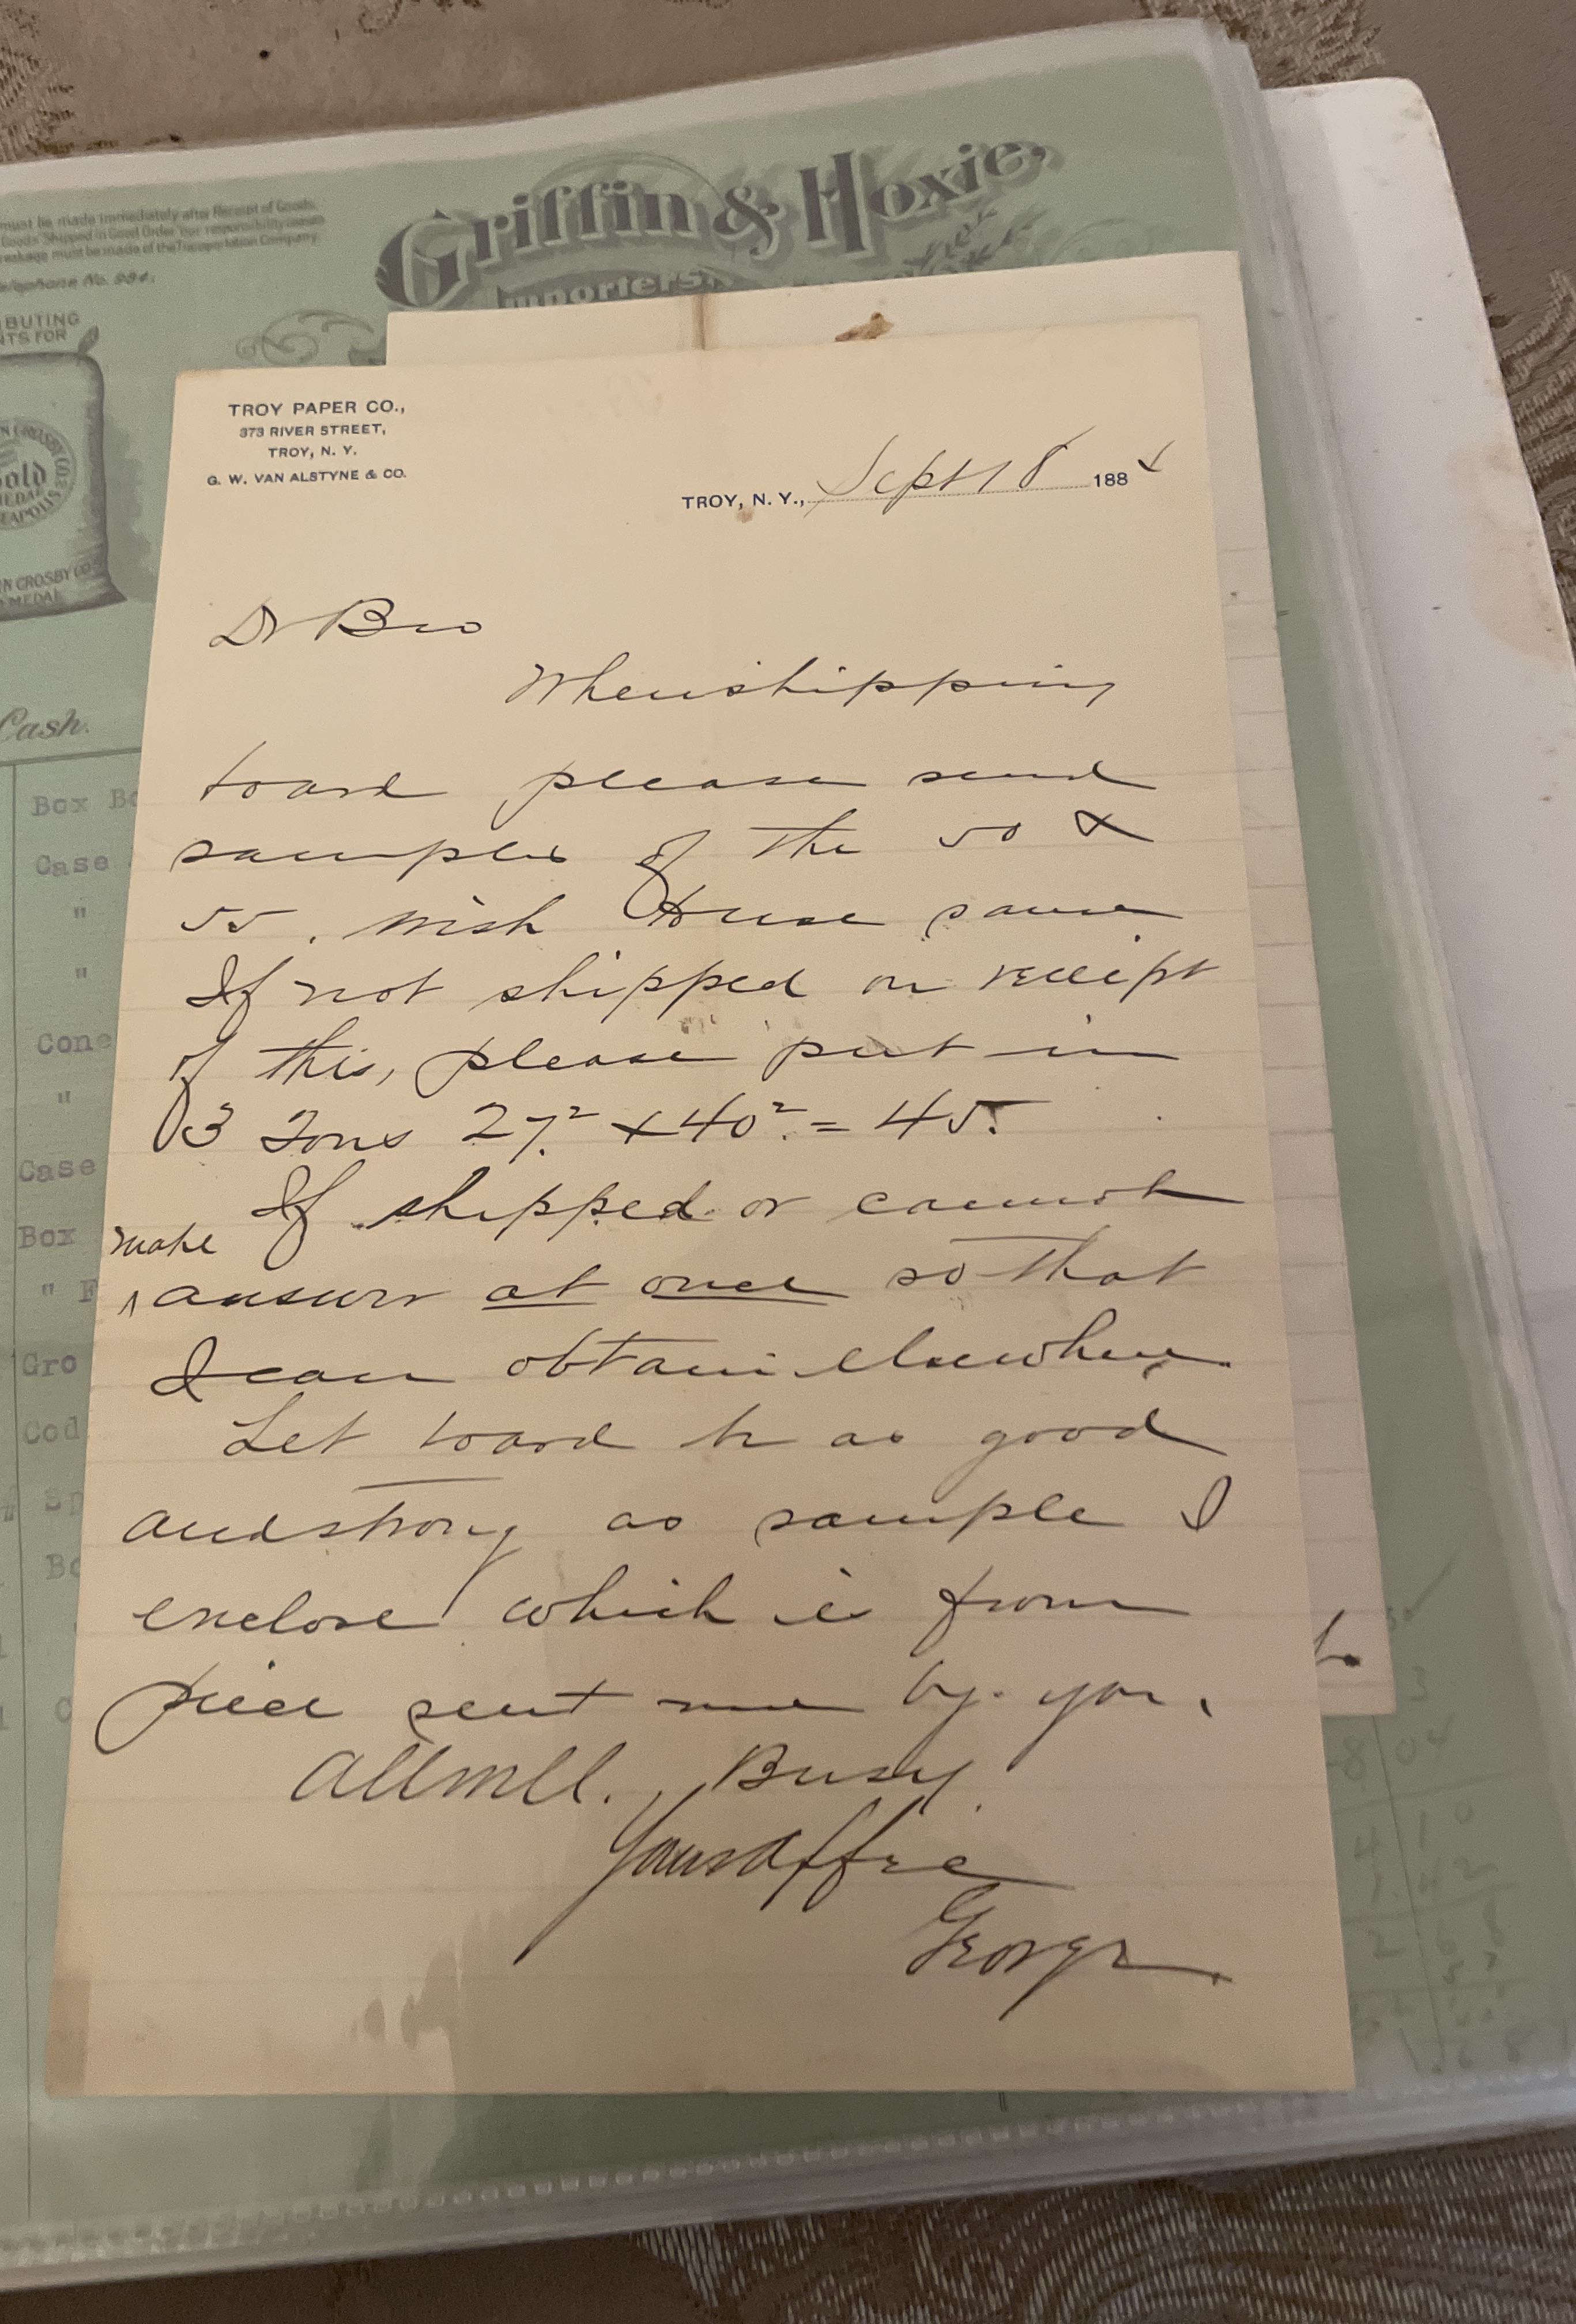 Griffin & Hoxie,
Importers,
must be made immediately after Receipt of Goods.
Goods Shipped in Good Order, our responsibility ceases
must be made of the Transportation Company.
Telephone No. 984.
BUTING
TS FOR
N CROSBY CO
Gold
MEDAL
EAPOLIS
N CROSBY CO
MEDAL
Cash.
Box Bo
Case
"
"
Cone
"
Case
Box
" F
Gro
Cod
Sp
Bo
TROY PAPER CO.,
373 RIVER STREET,
TROY, N. Y.
G. W. VAN ALSTYNE & CO.
TROY, N. Y., Sept 18 188
Dr Bro
When shipping
board please send
samples of the 50 &
55. Wish to use same
If not shipped on receipt
of this, please put in
3 Tons 27.² x 40².= 45.
If shipped or cannot
make
^ answer at once so that
I can obtain elsewhere.
Let board be as good
and strong as sample I
enclose which is from
piece sent me by you.
All well. Busy.
Yours Affec
George.